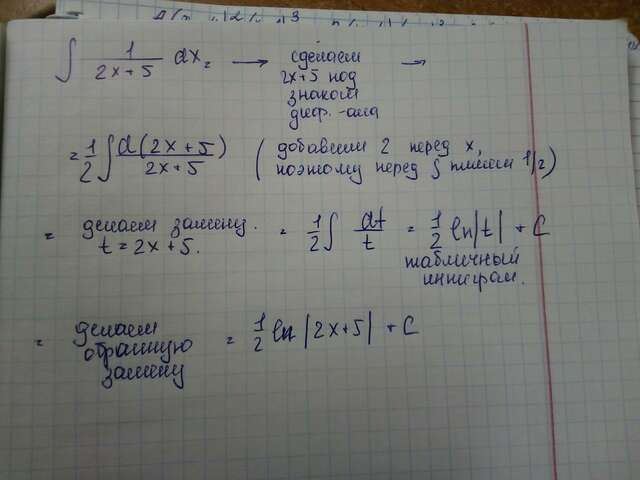 ∫ 1/(2x+5) dx = → сделаем →
2x+5 под
знаком
диф.-ала
= 1/2 ∫ d(2x+5)/(2x+5) (добавили 2 перед x,
поэтому перед ∫ пишем 1/2)
= делаем замену. = 1/2 ∫ dt/t = 1/2 ln|t| + C
t = 2x+5.
табличный
интеграл.
= делаем = 1/2 ln |2x+5| + C
обратную
замену